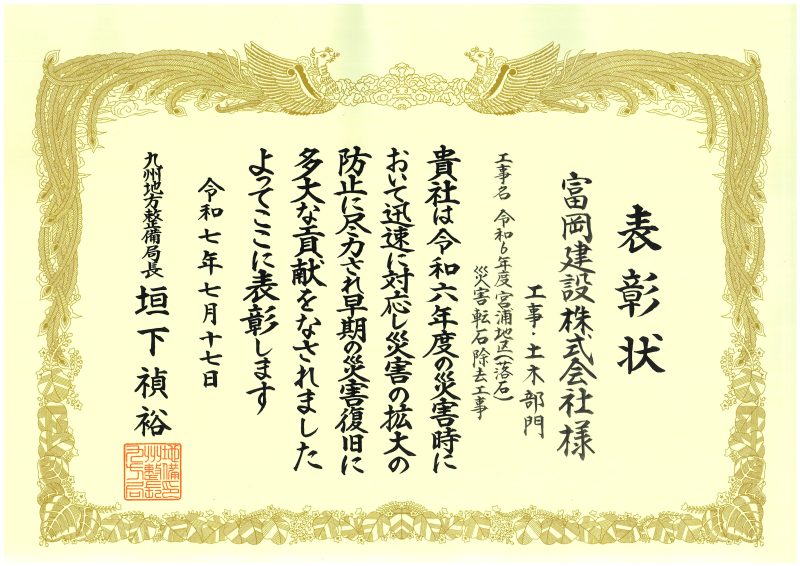 表彰状
富岡建設株式会社様
工事・土木部門
工事名 令和6年度宮浦地区(落石)
災害転石除去工事
貴社は令和六年度の災害時に
おいて迅速に対応し災害の拡大の
防止に尽力され早期の災害復旧に
多大な貢献をなされました
よってここに表彰します
令和七年七月十七日
九州地方整備局長 垣下禎裕